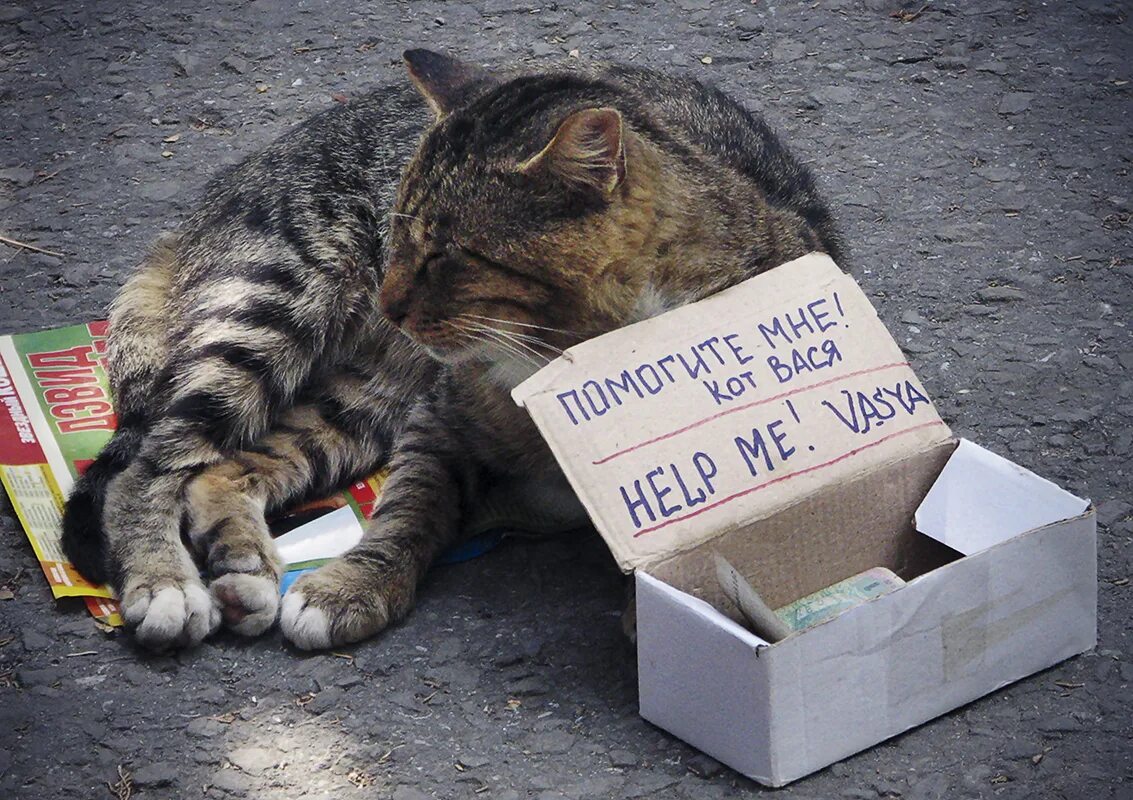 ПОМОГИТЕ МНЕ!
КОТ ВАСЯ
HELP ME! VASYA
ДЭВИД